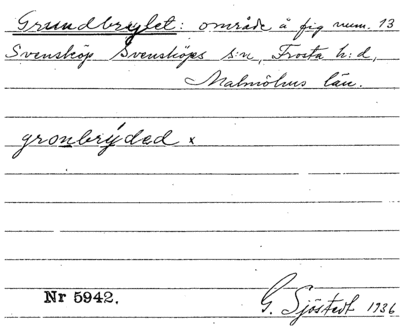 Grundbrydet: område å fig num. 13
Svensköp Svensköps s:n, Frosta h:d,
Malmöhus län.
gronbrýded x
Nr 5942.
G. Sjöstedt 1936